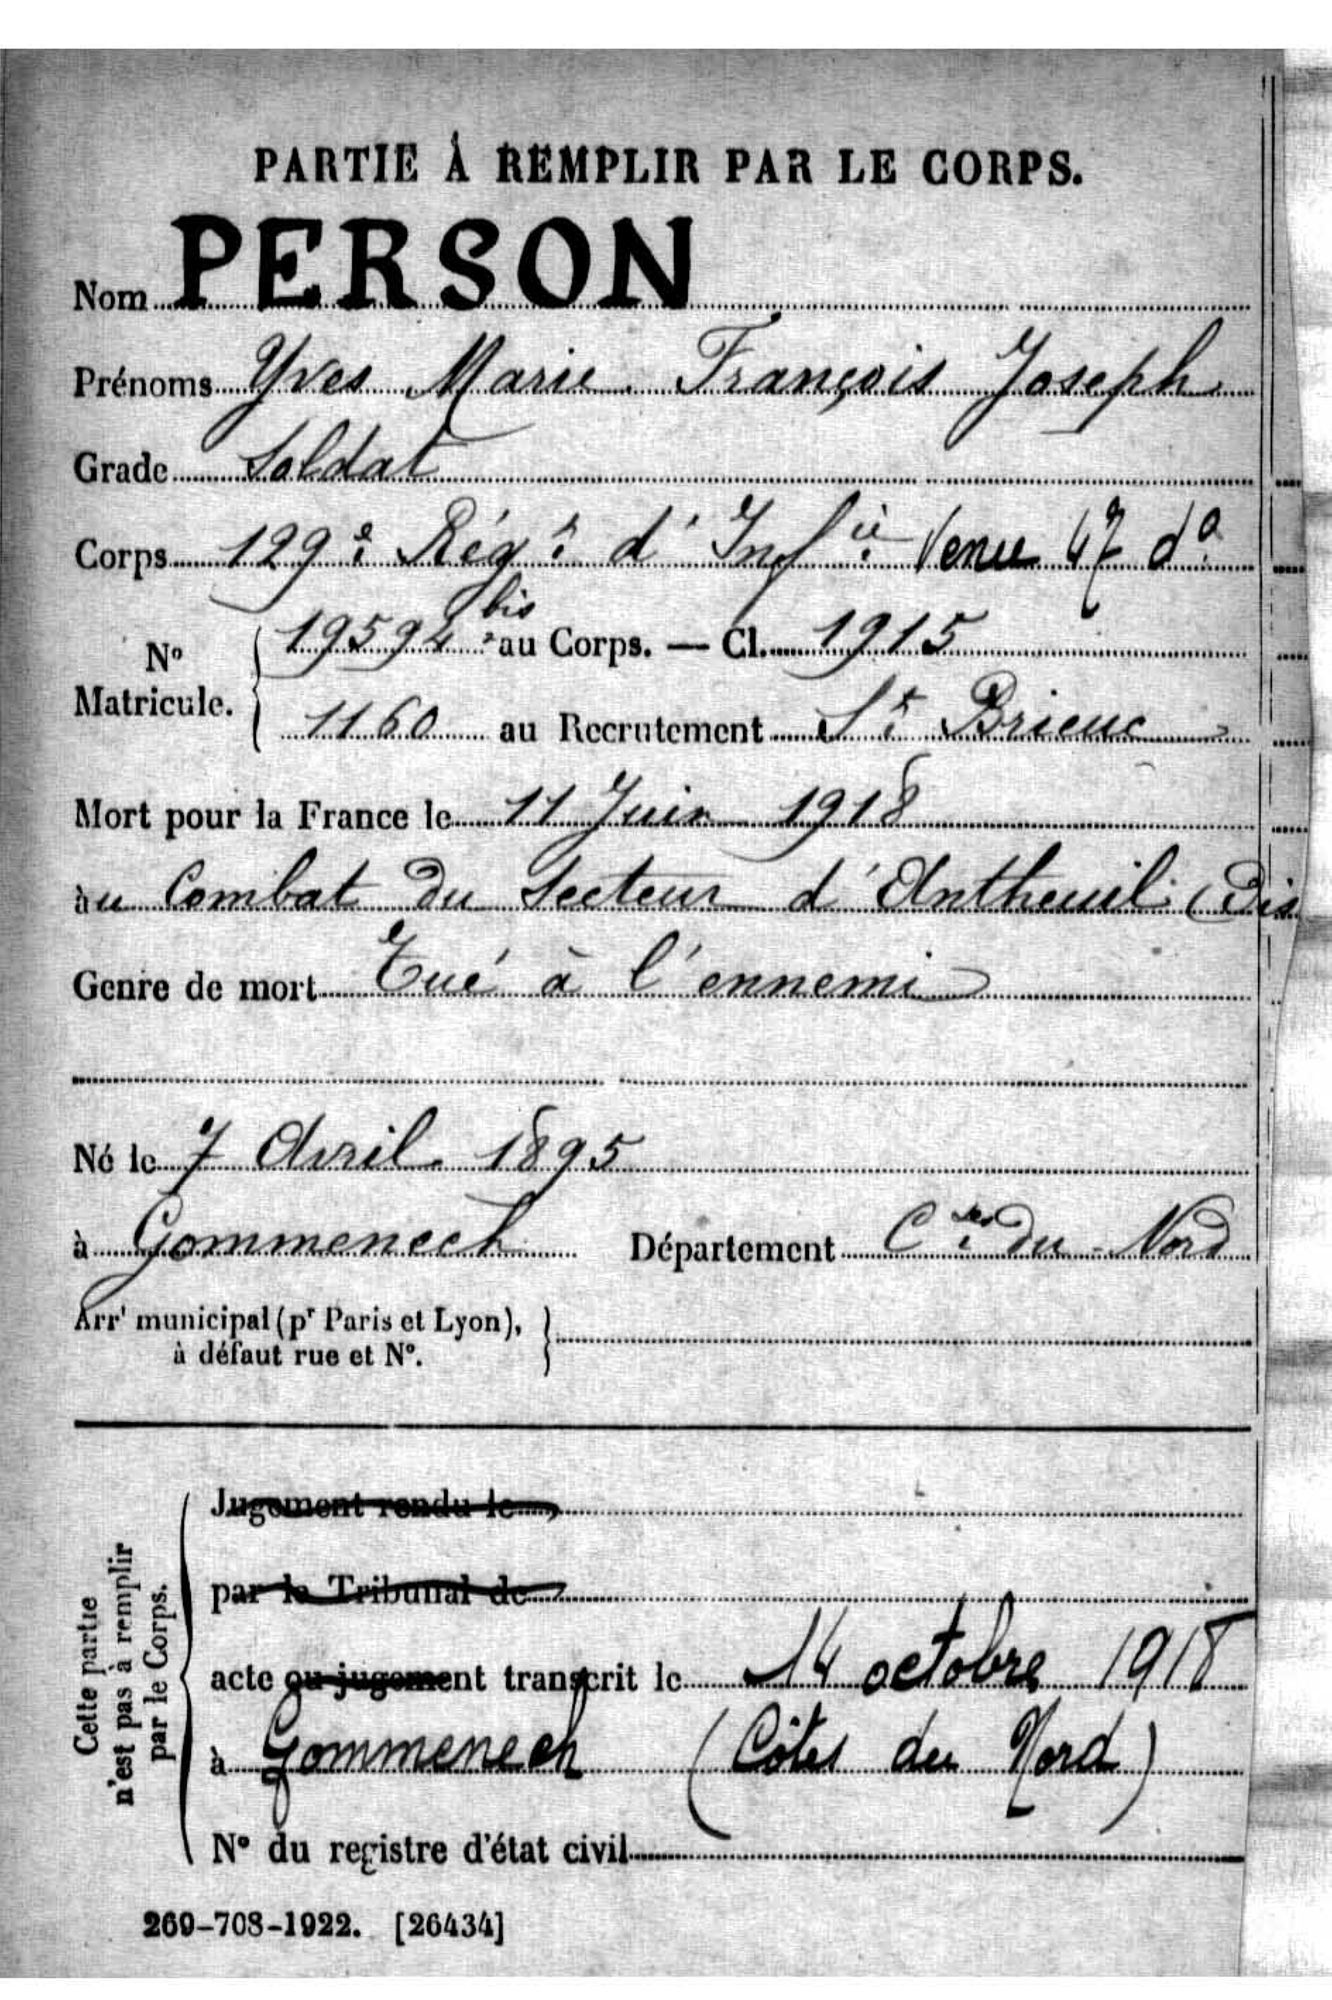 PARTIE À REMPLIR PAR LE CORPS.
Nom PERSON
Prénoms Yves Marie François Joseph
Grade Soldat
Corps 129e Régt d'Infie Venu 47 do
No Matricule. 19594 bis au Corps. — Cl. 1915
1160 au Recrutement St Brieuc
Mort pour la France le 11 Juin 1918
au Combat du Secteur d'Antheuil (Ois
Genre de mort Tué à l'ennemi
Né le 7 Avril 1895
à Gommenech Département Ctes du Nord
Arrt municipal (pr Paris et Lyon),
à défaut rue et No.
Cette partie
n'est pas à remplir
par le Corps.
Jugement rendu le
par le Tribunal de
acte ou jugement transcrit le 14 octobre 1918
à Gommenech (Côtes du Nord)
No du registre d'état civil
269-708-1922. [26434]